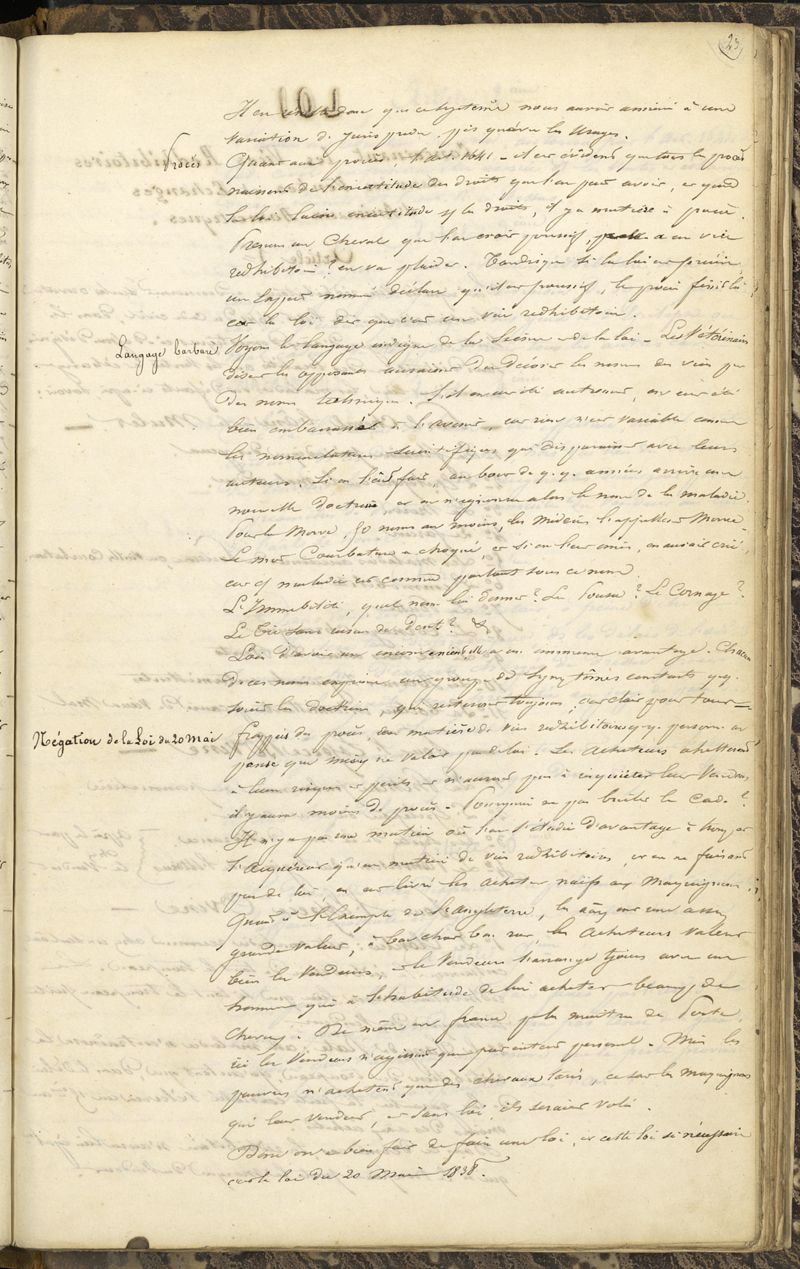 23
Il en résulte donc que ce système nous aurait amené à une
variation de jurisprudence pis qu'avec les usages.
Procès
Quant aux procès, 1641 - il est évident que tous les procès
naissent de l'incertitude des droits que l'on peut avoir, et quand
la loi laisse incertitude les droits, il y a matière à procès.
Prenons un Cheval que l'on croit poussif, a un vice
rédhibitoire ? on va plaider. Tandis que si la loi exprime
un nommé déclare qu'il est poussif, le procès finit là
car la loi dit que c'est un vice redhibitoire.
Langage barbare
Voyons le langage indigne de la Science et de la loi - Les Vétérinaires
disent les opposants auraient dû décorer les noms des vices par
des noms techniques. S'il en eut été autrement, on eut été
bien embarrassé à l'avenir, car rien n'est variable comme
les nomenclatures scientifiques qui disparaissent avec leurs
auteurs. Si on l'eut fait, au bout de q.q. années arrive une
nouvelle doctrine, et on n'ignorera alors le nom de la maladie.
Pour la Morve, 50 noms au moins, les Médecins l'appellent Morve
Le mot Courbature a choqué, et si on l'eut omis, on aurait crié,
car cette maladie est connue partout sous ce nom
L'Immobilité, quel nom lui donner ? La Pousse ? Le Cornage ?
Le Tic sans usure des dents ? &
Loin d'avoir un inconvénient, il a un immense avantage. Chacun
de ces noms exprime un groupe de symptômes constants q.q.
soient les doctrines, qui resteront toujours, car clair pour tous
Négation de la Loi du 20 Mai
frappés du procès, en matière de vices rédhibitoires q.q. personnes ont
pensé que mieux ne valoir pas de loi. Les acheteurs achetteront
à leurs risques et périls et n'auront pas à inquiéter leur Vendeur,
il y aura moins de procès. Pourquoi ne pas brûler le Code ?
Il n'y a pas une matière où l'on s'étudie d'avantage à tromper
l'acquéreur qu'en matière de vices redhibitoires, et en ne faisant
pas de loi, on eut livré les acheteurs naïfs aux Maquignons.
Quant à l'Exemple de l'Angleterre, les ont une assez
grande valeur, les Acheteurs valent
bien les Vendeurs, et le Vendeur s'arrange tjours avec un
homme qui a l'habitude de lui acheter beaucoup de
Chevaux. De même en france, p. les maitres de Poste,
ici les Vendeurs n'agissent que par intérêt personnel. Mais les
pauvres n'achètent que des chevaux tarés, ce sont les Maquignons
qui leur vendent, et sans loi ils seraient volés.
Donc on a bien fait de faire une loi, et cette loi si nécessaire
est la loi du 20 Mai 1838.